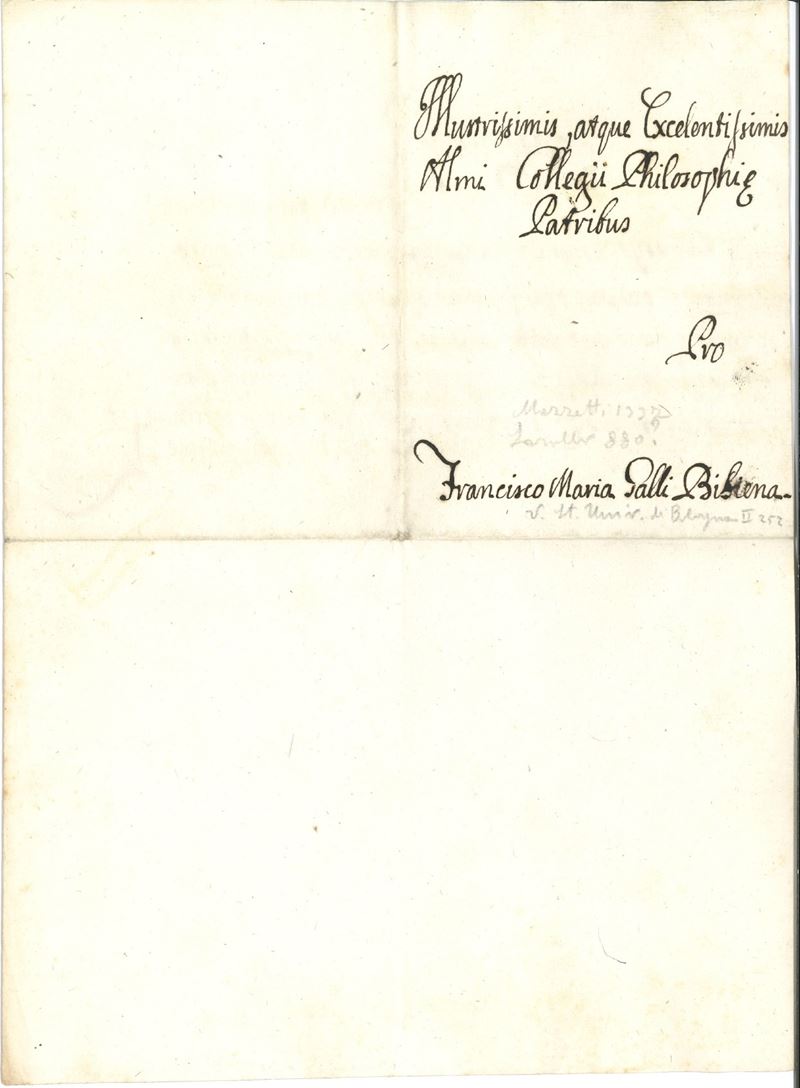 Illustrissimis, atque Excelentissimis
Almi Collegii Philosophię
Patribus
Pro
Mazzetti 1397
880?
Francisco Maria Galli Bibiena
v. St. Univ. di Bologna II 252